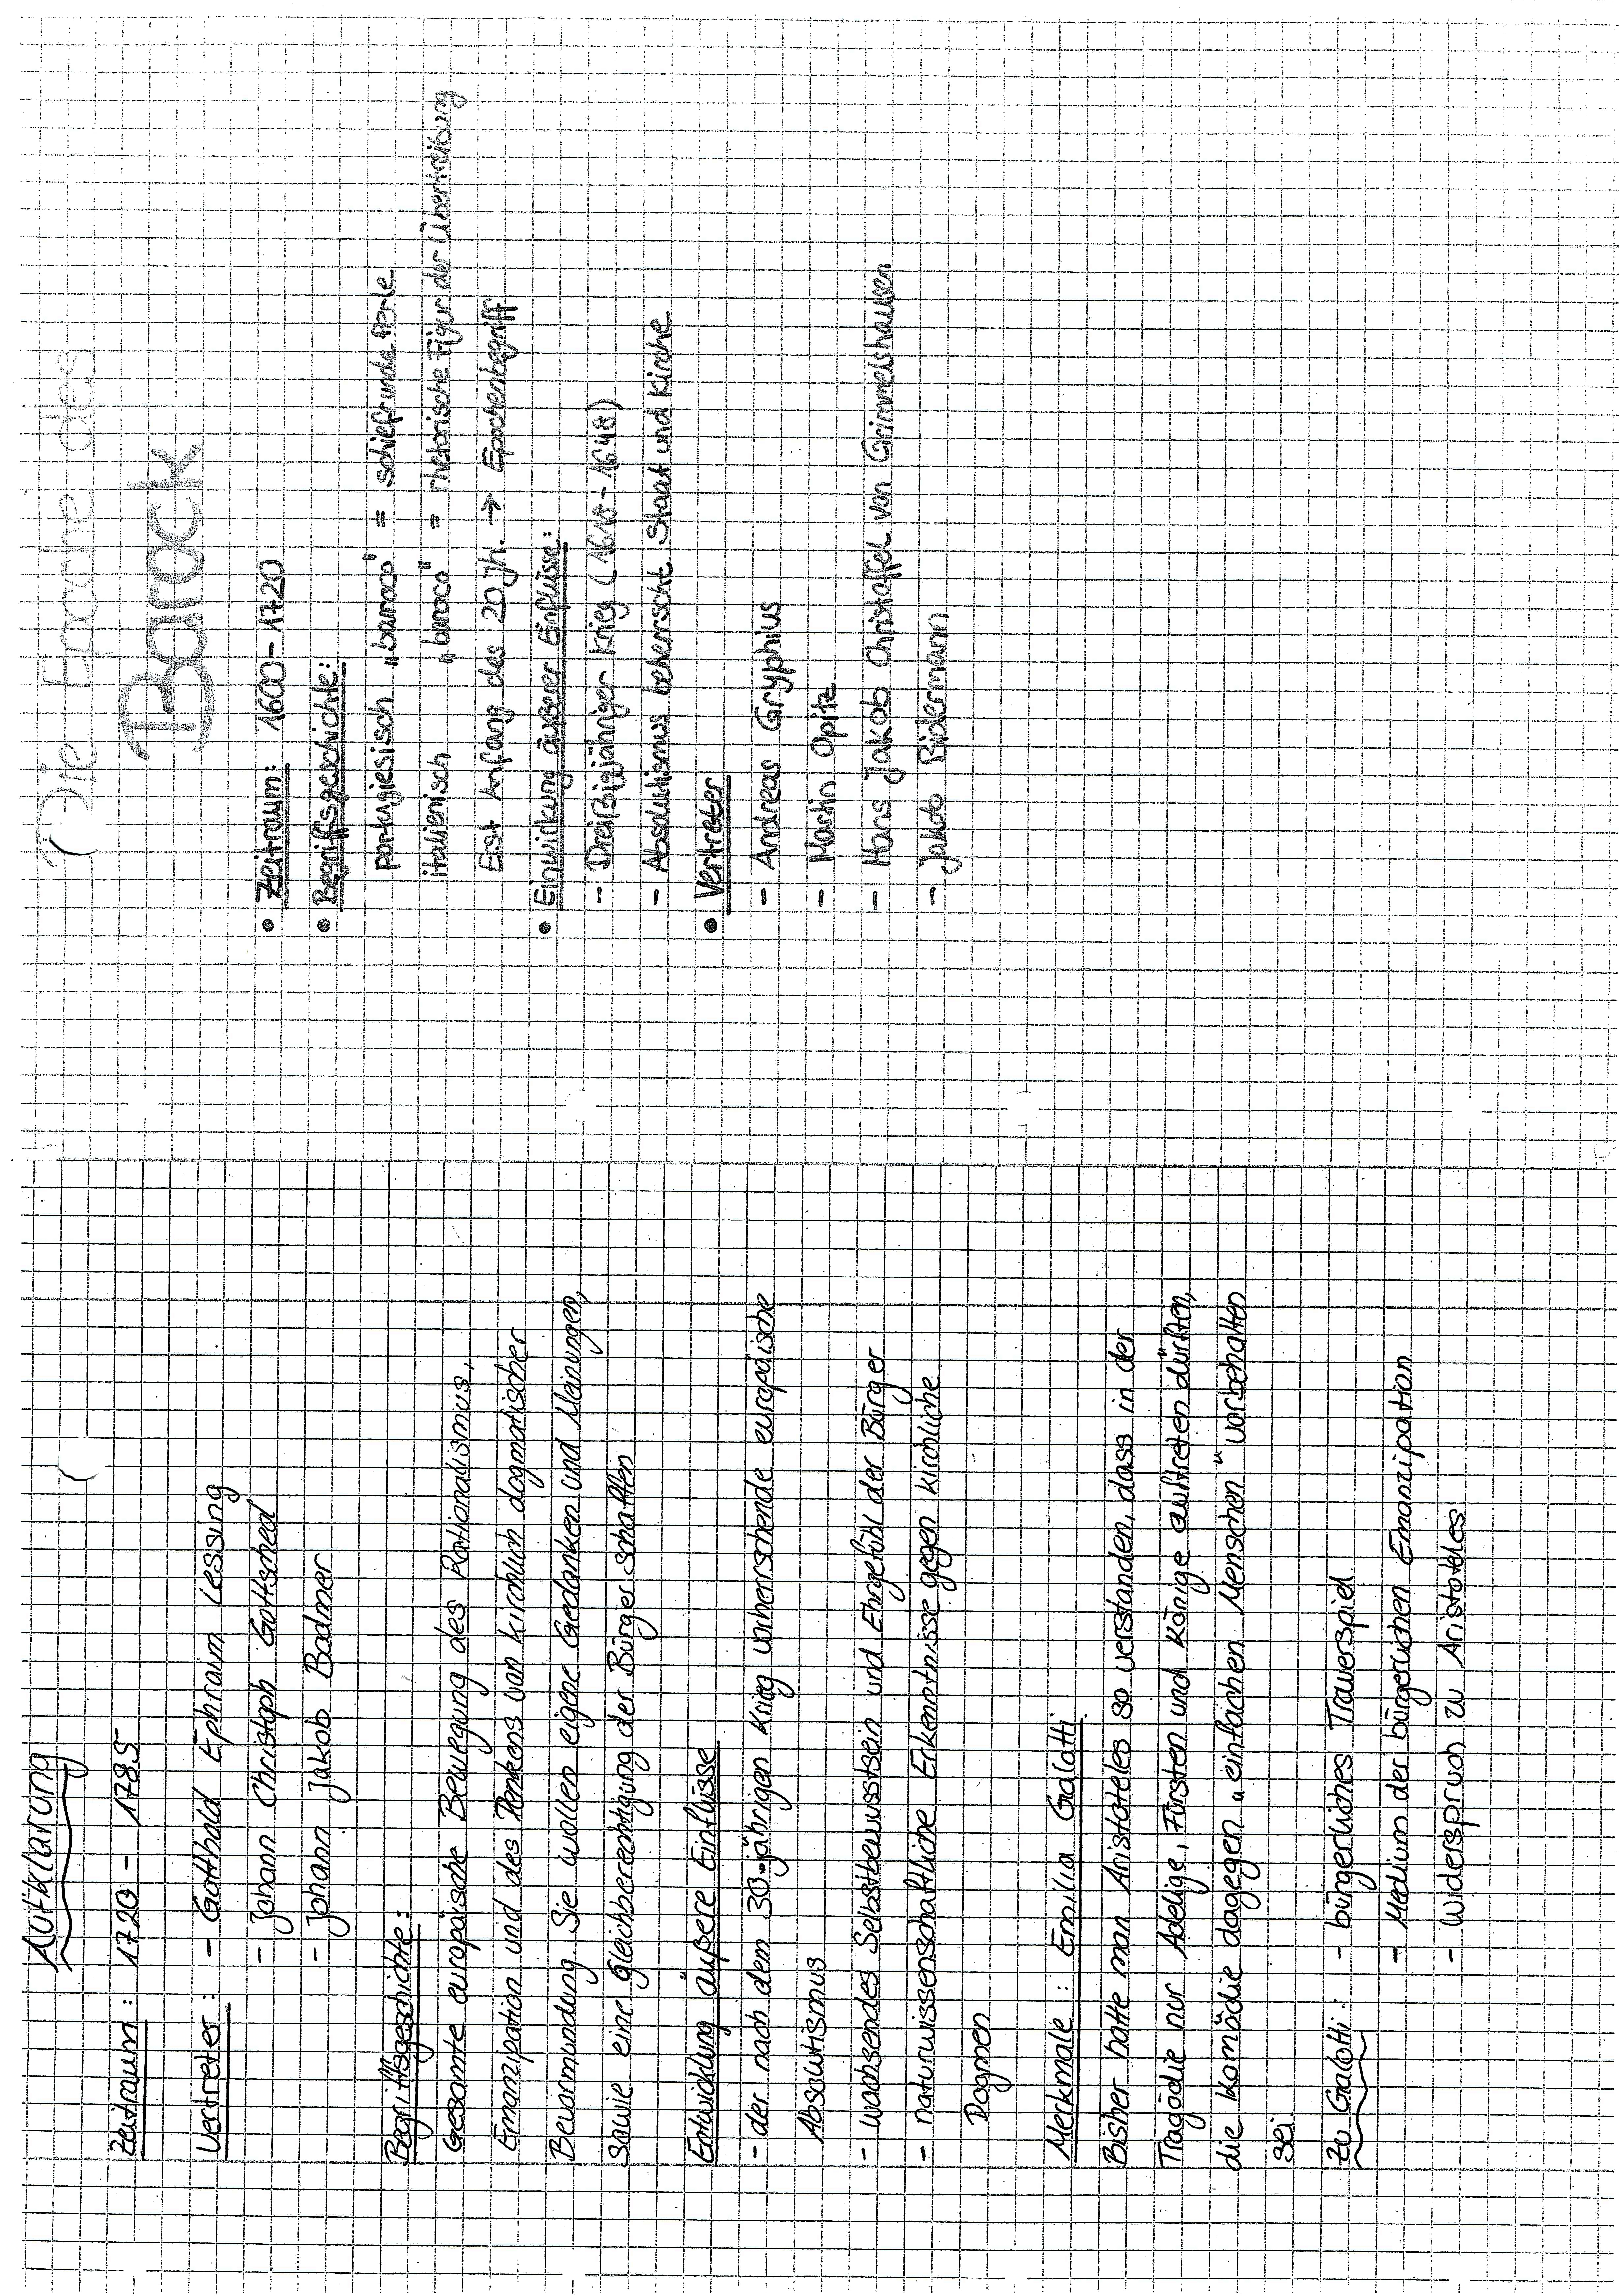 Aufklärung
Zeitraum: 1720 - 1785
Vertreter: - Gotthold Ephraim Lessing
- Johann Christoph Gottsched
- Johann Jakob Bodmer
Begriffsgeschichte:
Gesamte europäische Bewegung des Rationalismus,
Emanzipation und des Denkens von kirchlich dogmatischer
Bevormundung. Sie wollen eigene Gedanken und Meinungen,
sowie eine Gleichberechtigung der Bürger schaffen
Entwicklung äußere Einflüsse
- der nach dem 30-jährigen Krieg vorherrschende europäische
Absolutismus
- wachsendes Selbstbewusstsein und Ehrgefühl der Bürger
- naturwissenschaftliche Erkenntnisse gegen kirchliche
Dogmen
Merkmale: Emilia Galotti
Bisher hatte man Aristoteles so verstanden, dass in der
Tragödie nur Adelige, Fürsten und Könige auftreten dürften,
die Komödie dagegen „einfachen Menschen" vorbehalten
sei.
Zu Galotti: - bürgerliches Trauerspiel
- Medium der bürgerlichen Emanzipation
- Widerspruch zu Aristoteles
Die Epoche des
Barock
• Zeitraum: 1600-1720
• Begriffsgeschichte:
portugiesisch „barroco" = schiefrunde Perle
italienisch „baroco" = rhetorische Figur der Übertreibung
Erst Anfang des 20 Jh. → Epochenbegriff
• Einwirkung äußerer Einflüsse:
- Dreißigjähriger Krieg (1618-1648)
- Absolutismus beherrscht Staat und Kirche
• Vertreter
- Andreas Gryphius
- Martin Opitz
- Hans Jakob Christoffel von Grimmelshausen
- Jakob Bidermann